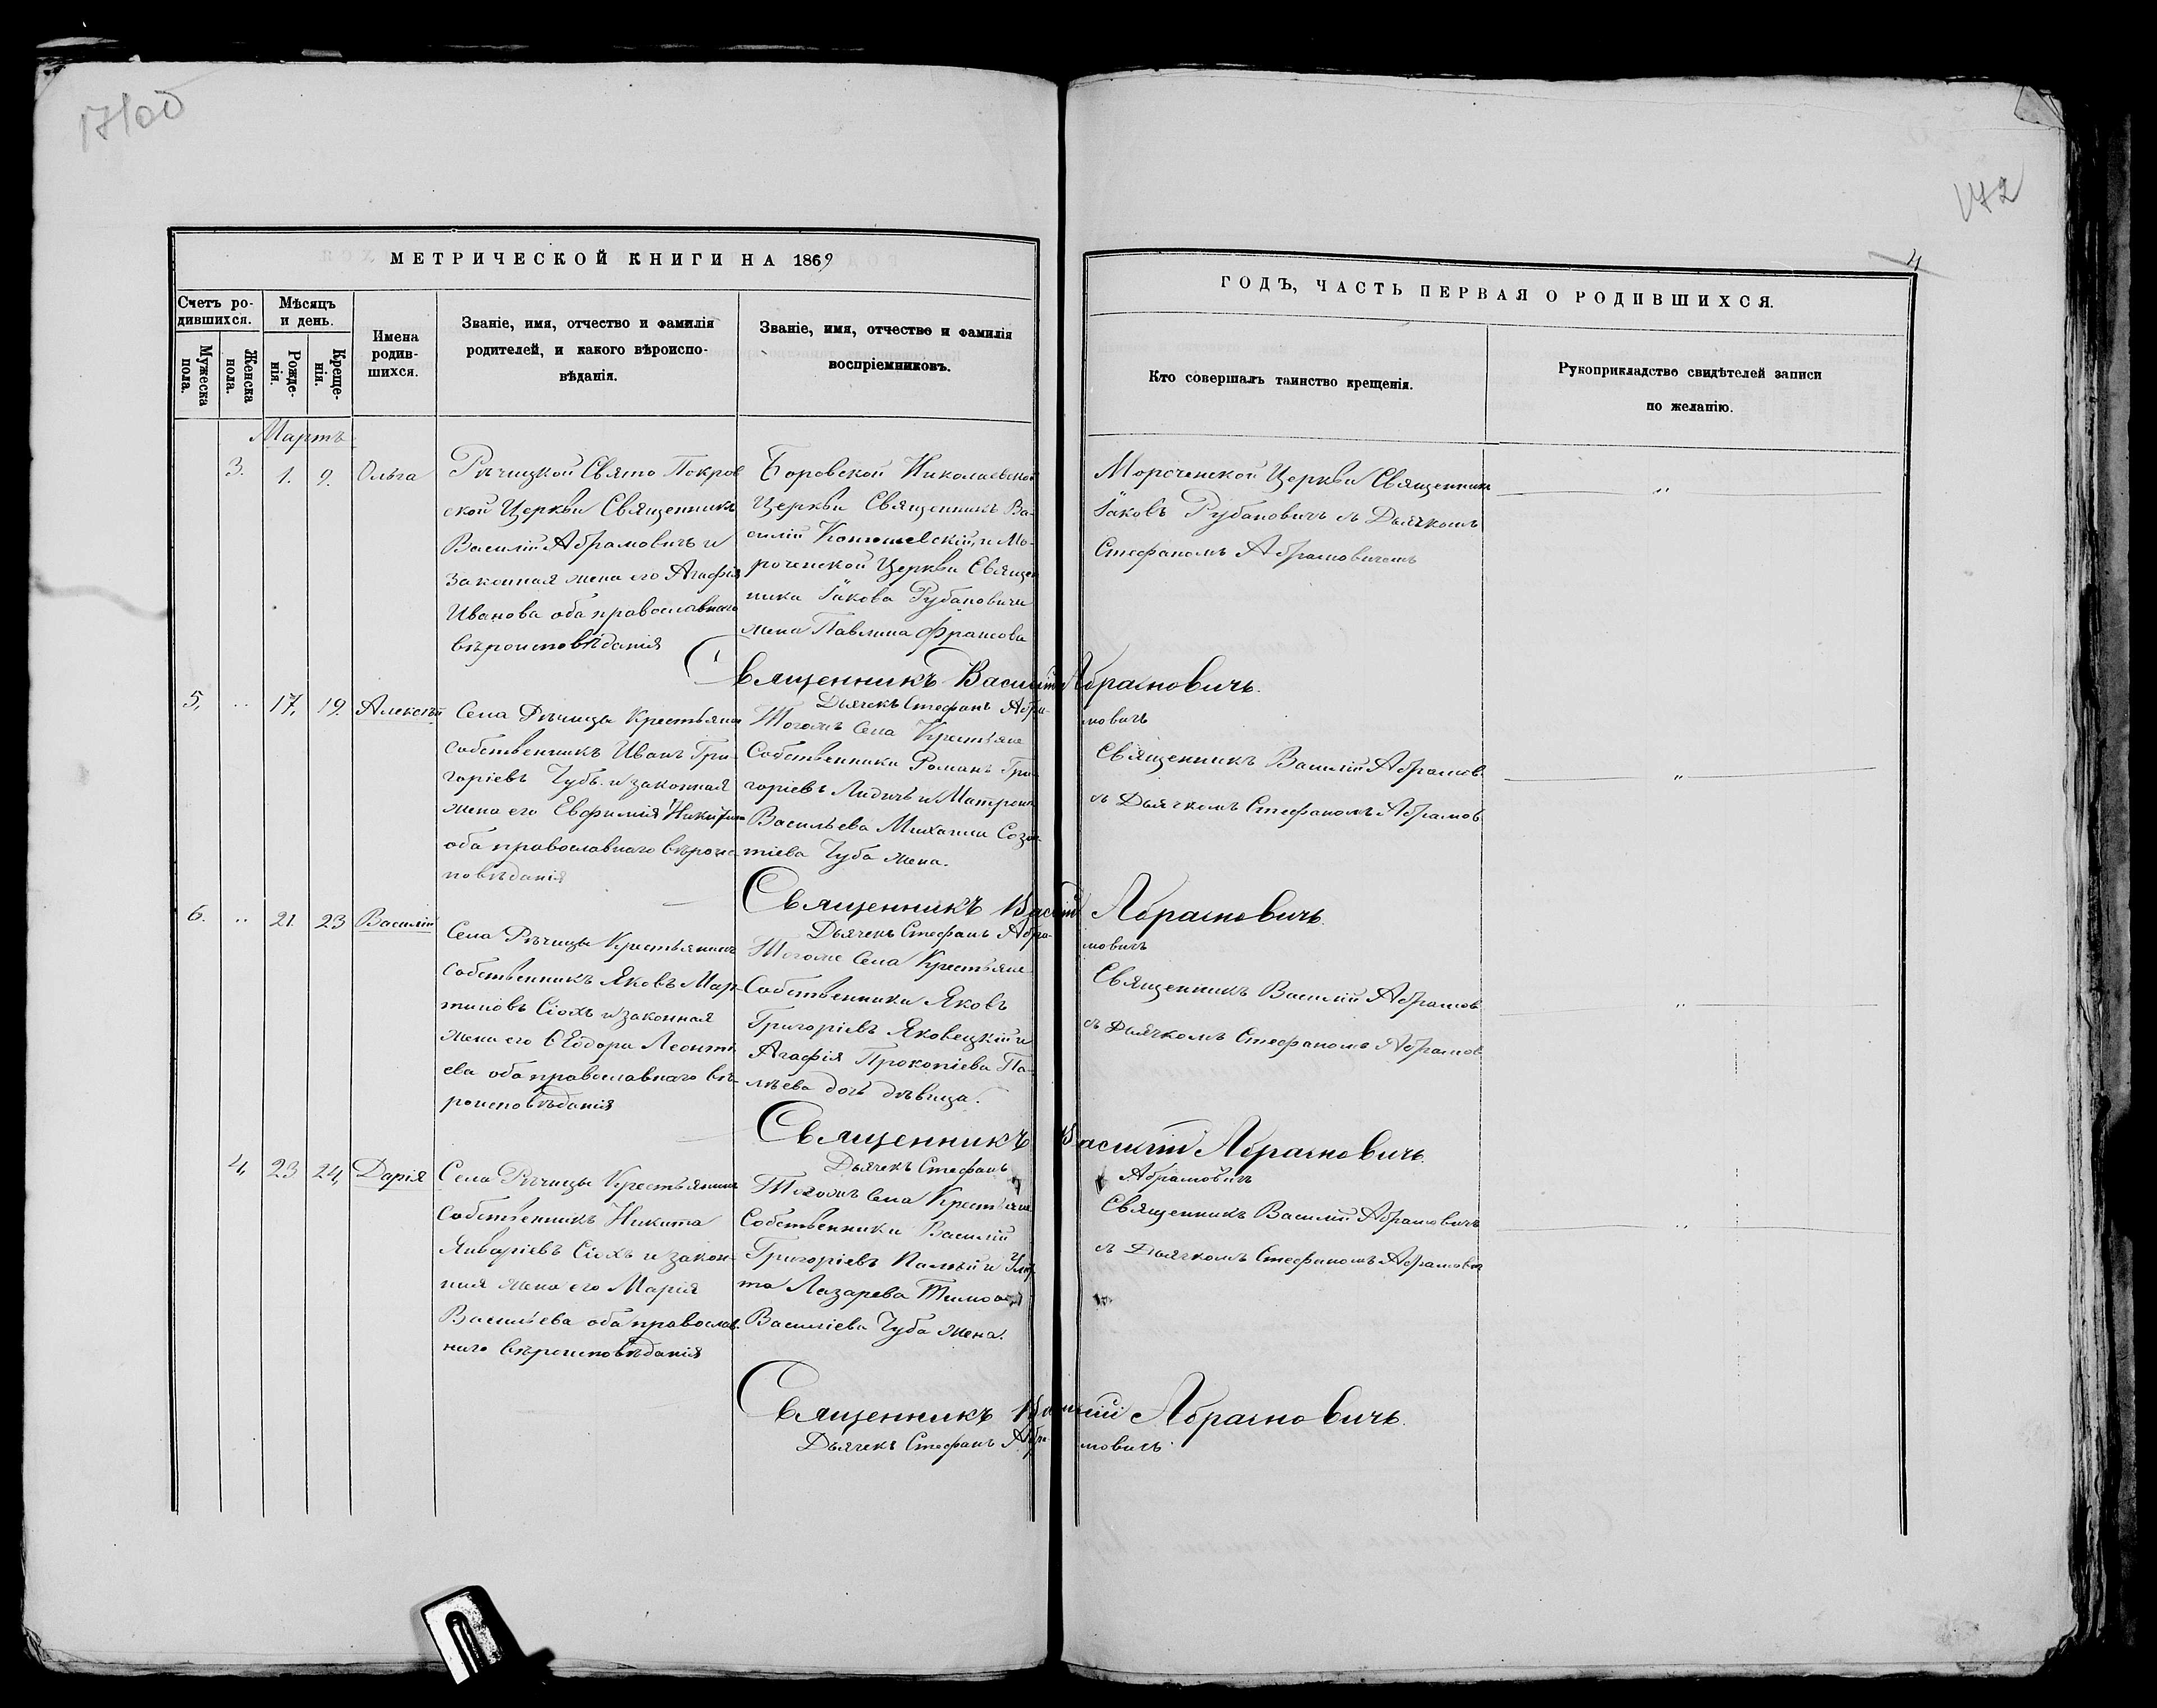 17100
142
4
МЕТРИЧЕСКОЙ КНИГИ НА 1869
ГОДЪ, ЧАСТЬ ПЕРВАЯ О РОДИВШИХСЯ.
Счетъ ро-
дившихся.
Мужеска
пола.
Женска
пола.
Мѣсяцъ
и день.
Рожде-
нія.
Креще-
нія.
Имена
родив-
шихся.
Званіе, имя, отчество и фамилія
родителей, и какого вѣроиспо-
вѣданія.
Званіе, имя, отчество и фамилія
воспріемниковъ.
Кто совершалъ таинство крещенія.
Рукоприкладство свидѣтелей записи
по желанію.
Мартъ
3. 1. 9. Ольга
Рѣчицкой Свято Покров
ской Церкви Священникъ
Василій Абрамовичъ и
законная жена его Агафія
Иванова оба православнаго
вѣроисповѣданія
Боровской Николаевской
Церкви Священникъ Ва-
силій Конюшевскій, и Мо-
роченской Церкви Священ
ника Іакова Рубановича
жена Павлина
Мороченской Церкви Священникъ
Іаковъ Рубановичъ съ Дьячкомъ
Стефаномъ Абрамовичемъ
"
Священникъ Василій Абрамовичъ.
Дьячекъ Стефанъ Абра-
мовичъ
5, .. 17, 19. Алексѣй
Села Рѣчицы Крестьянинъ
собственникъ Иванъ Гри-
горіевъ Чубъ и законная
жена его Евфимія
оба православнаго вѣроис-
повѣданія
Тогожъ Села Крестьяне
Собственники Романъ Гри-
горіевъ Лидичъ и Матрона
Васильева Михаила Созон-
тіева Чуба жена.
Священникъ Василій Абрамов.
съ Дьячкомъ Стефаномъ Абрамов
"
Священникъ Василій Абрамовичъ.
Дьячекъ Стефанъ Абра-
мовичъ
6. .. 21. 23 Василій
Села Рѣчицы Крестьянинъ
собственникъ Яковъ Мар-
тиновъ Сіохъ и законная
жена его Ѳеодора Леонті
ева оба православнаго вѣ-
роисповѣданія
Тогоже Села Крестьяне
Собственники Яковъ
Григоріевъ Яковецкій и
Агафія Прокопіева Па-
лѣева дочь дѣвица.
Священникъ Василій Абрамов
съ Дьячкомъ Стефаномъ Абрамов
"
Священникъ Василій Абрамовичъ.
Дьячекъ Стефанъ
Абрамовичъ
4, 23 24, Дарія
Села Рѣчицы Крестьянинъ
Собственникъ Никита
Януаріевъ Сіохъ и закон-
ная жена его Марія
Васильева оба православ-
наго вѣроисповѣданія
Тогожъ Села Крестьяне
Собственники Василій
Григоріевъ Палѣй и Ули
та Лазарева
Василіева Чуба жена.
Священникъ Василій Абрамовичъ
съ Дьячкомъ Стефаномъ Абрамович
"
Священникъ Василій Абрамовичъ.
Дьячекъ Стефанъ Абра-
мовичъ